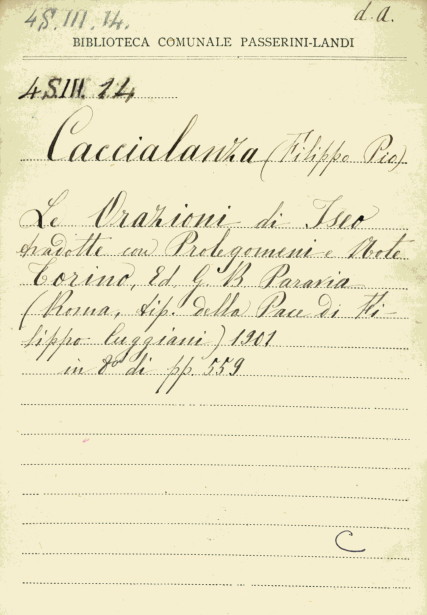 4S.III.14.
d. a.
BIBLIOTECA COMUNALE PASSERINI-LANDI
4S.III. 14
Caccialanza (Filippo Pio)
Le Orazioni di Iseo
tradotte con Prolegomeni e Note
Torino, Ed. G B Paravia
(Roma, tip. della Pace di Fi-
lippo Cuggiani) 1901
in 8º di pp. 559
C